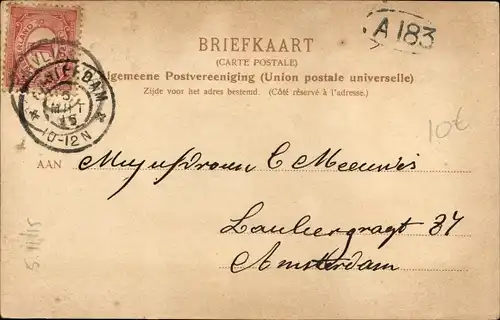 A 183
BRIEFKAART
(CARTE POSTALE)
Algemeene Postvereeniging (Union postale universelle)
Zijde voor het adres bestemd. (Côté réservé à l'adresse.)
10-12N
10€
AAN
Mejufvrouw C Meeuwis
Lauriergragt 37
Amsterdam